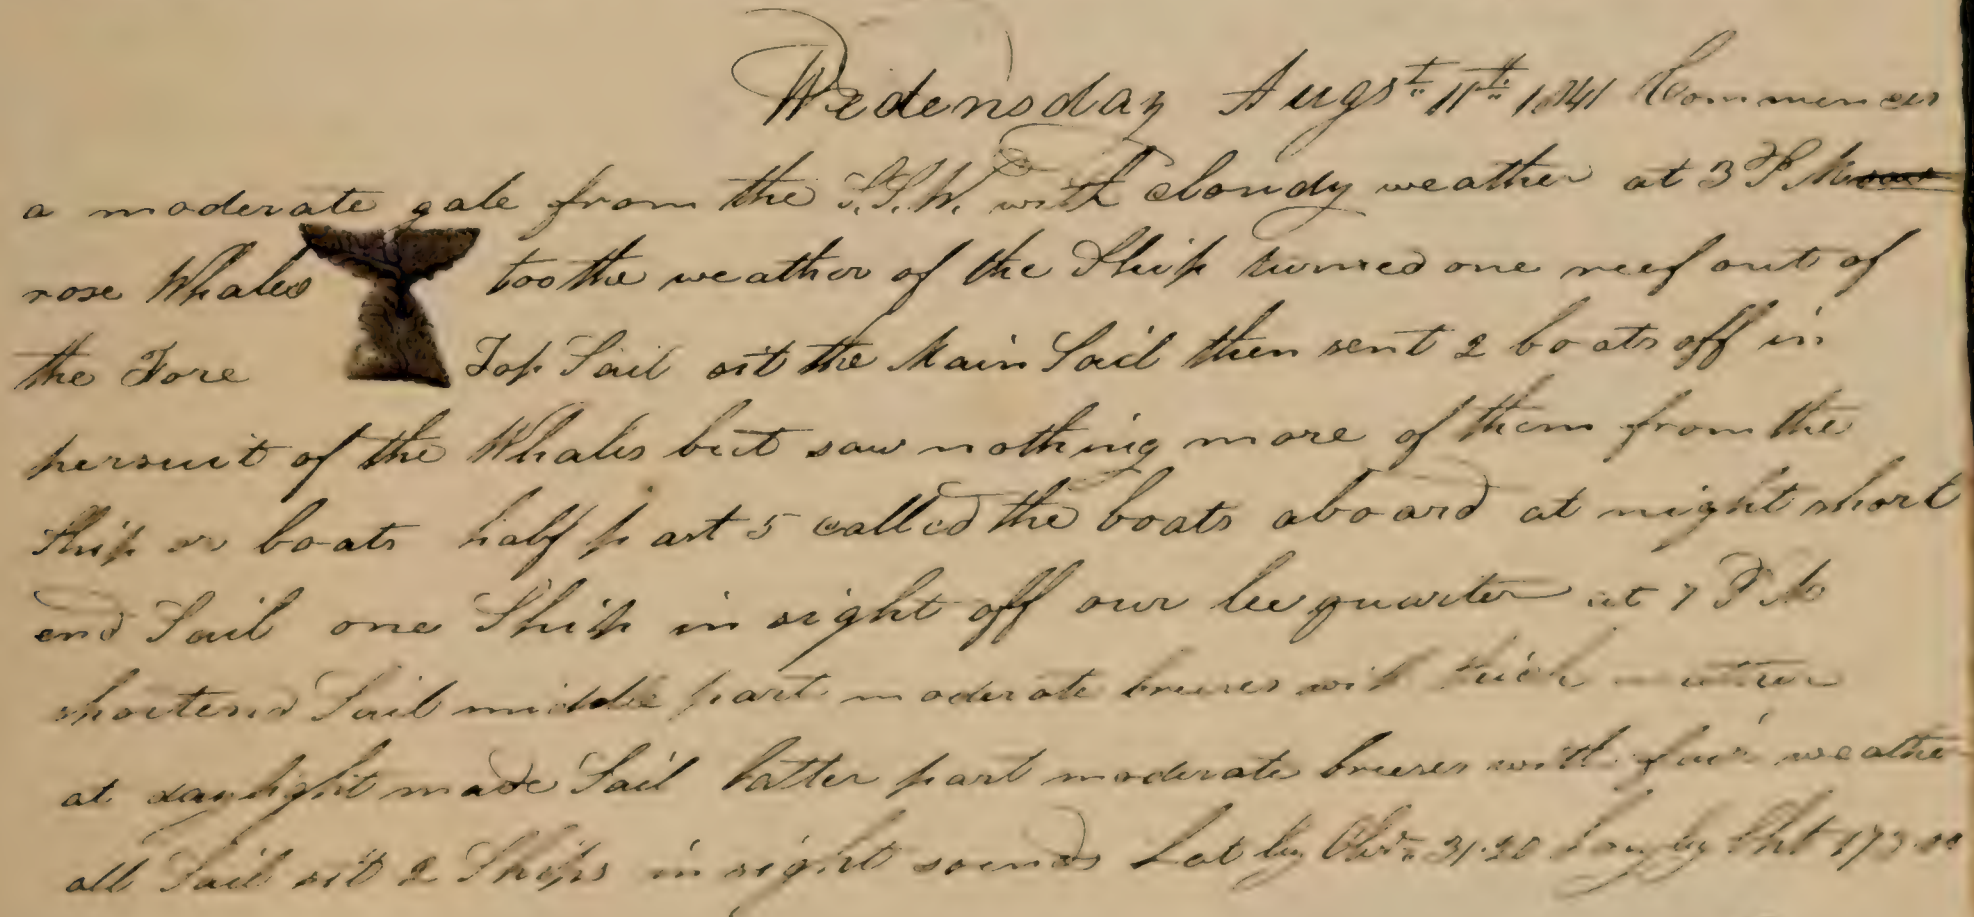 Wedensday Augst 11th 1841 Commences
a moderate gale from the S.S.W. with cloudy weather at 3 P M
rose Whales too the weather of the Ship turned one reef out of
the Fore Top Sail sit the Main Sail then sent 2 boats off in
persuit of the Whales but saw nothing more of them from the
Ship or boats half past 5 called the boats aboard at night short
end Sail one Ship in sight off our lee quarter at 7 P M
shortend Sail middle part moderate breeses with thick weather
at daylight made Sail latter part moderate breeses with fair weather
all Sail sit 2 Ships in sight Lat by Obs 31.20 Long by Cht